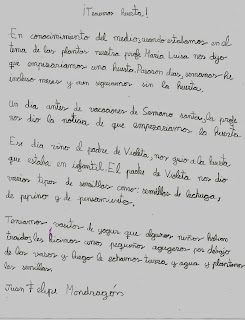 ¡Tenemos huerta!
En conocimiento del medio, cuando estudiamos en el
tema de las plantas nuestra profe Maria Luisa nos dijo
que empezariamos una huerta. Pasaron dias, semanas he
incluso meses y aun seguiamos sin la huerta.
Un dia antes de vacaciones de Semana santa, la profe
nos dio la noticia de que empezariamos la huerta
Ese dia vino el padre de Violeta, nos guio a la huerta
que estaba en infantil. El padre de Violeta nos dio
varios tipos de semillas como: semillas de lechuga,
de pepino y de pensamiento.
Teniamos vasitos de yogur que algunos niños habian
traido, les hicimos unos pequeños agugeros por debajo
de los vasos y luego le echamos tierra y agua y plantamos
las semillas.
Juan Felipe Mondragón